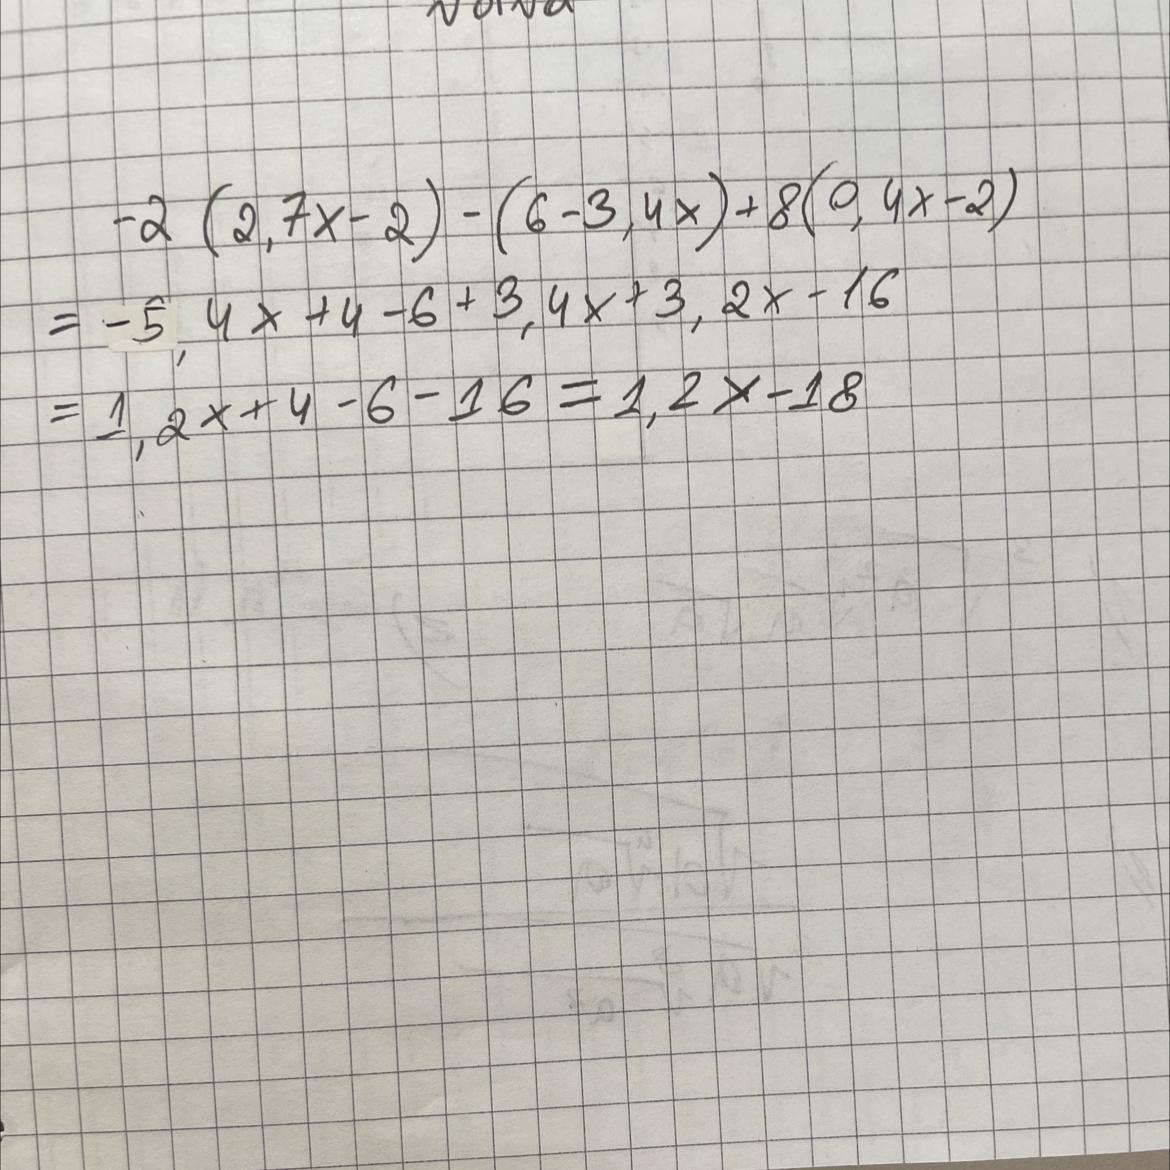 -2 (2,7x-2)-(6-3,4x)+8(0,4x-2)
= -5,4x+4-6+3,4x+3,2x-16
= 1,2x+4-6-16=1,2x-18